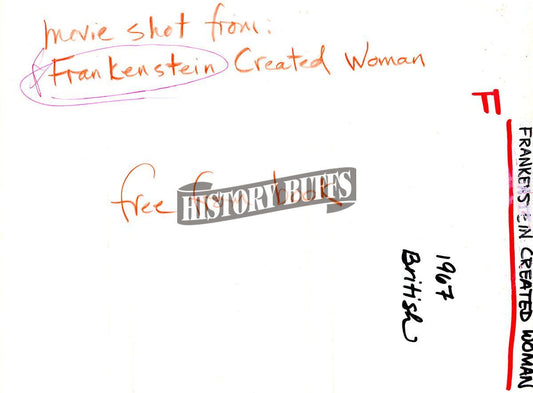 movie shot from:
Frankenstein Created Woman
free from book
HISTORY BUFFS
F
FRANKENSTEIN CREATED WOMAN
1967
British